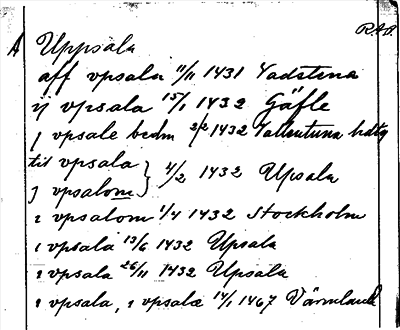 RAP
A Uppsala
aff vpsala 11/11 1431 Vadstena
ij vpsala 15/1 1432 Gäfle
j vpsale bedm 2/2 1432 Vallentuna hdtg
til vpsala
j vpsalom } 4/2 1432 Upsala
i vpsalom 1/4 1432 Stockholm
i vpsala 13/6 1432 Upsala
i vpsala 26/11 1432 Upsala
i vpsala, i vpsalæ 14/1 1467 Värmland